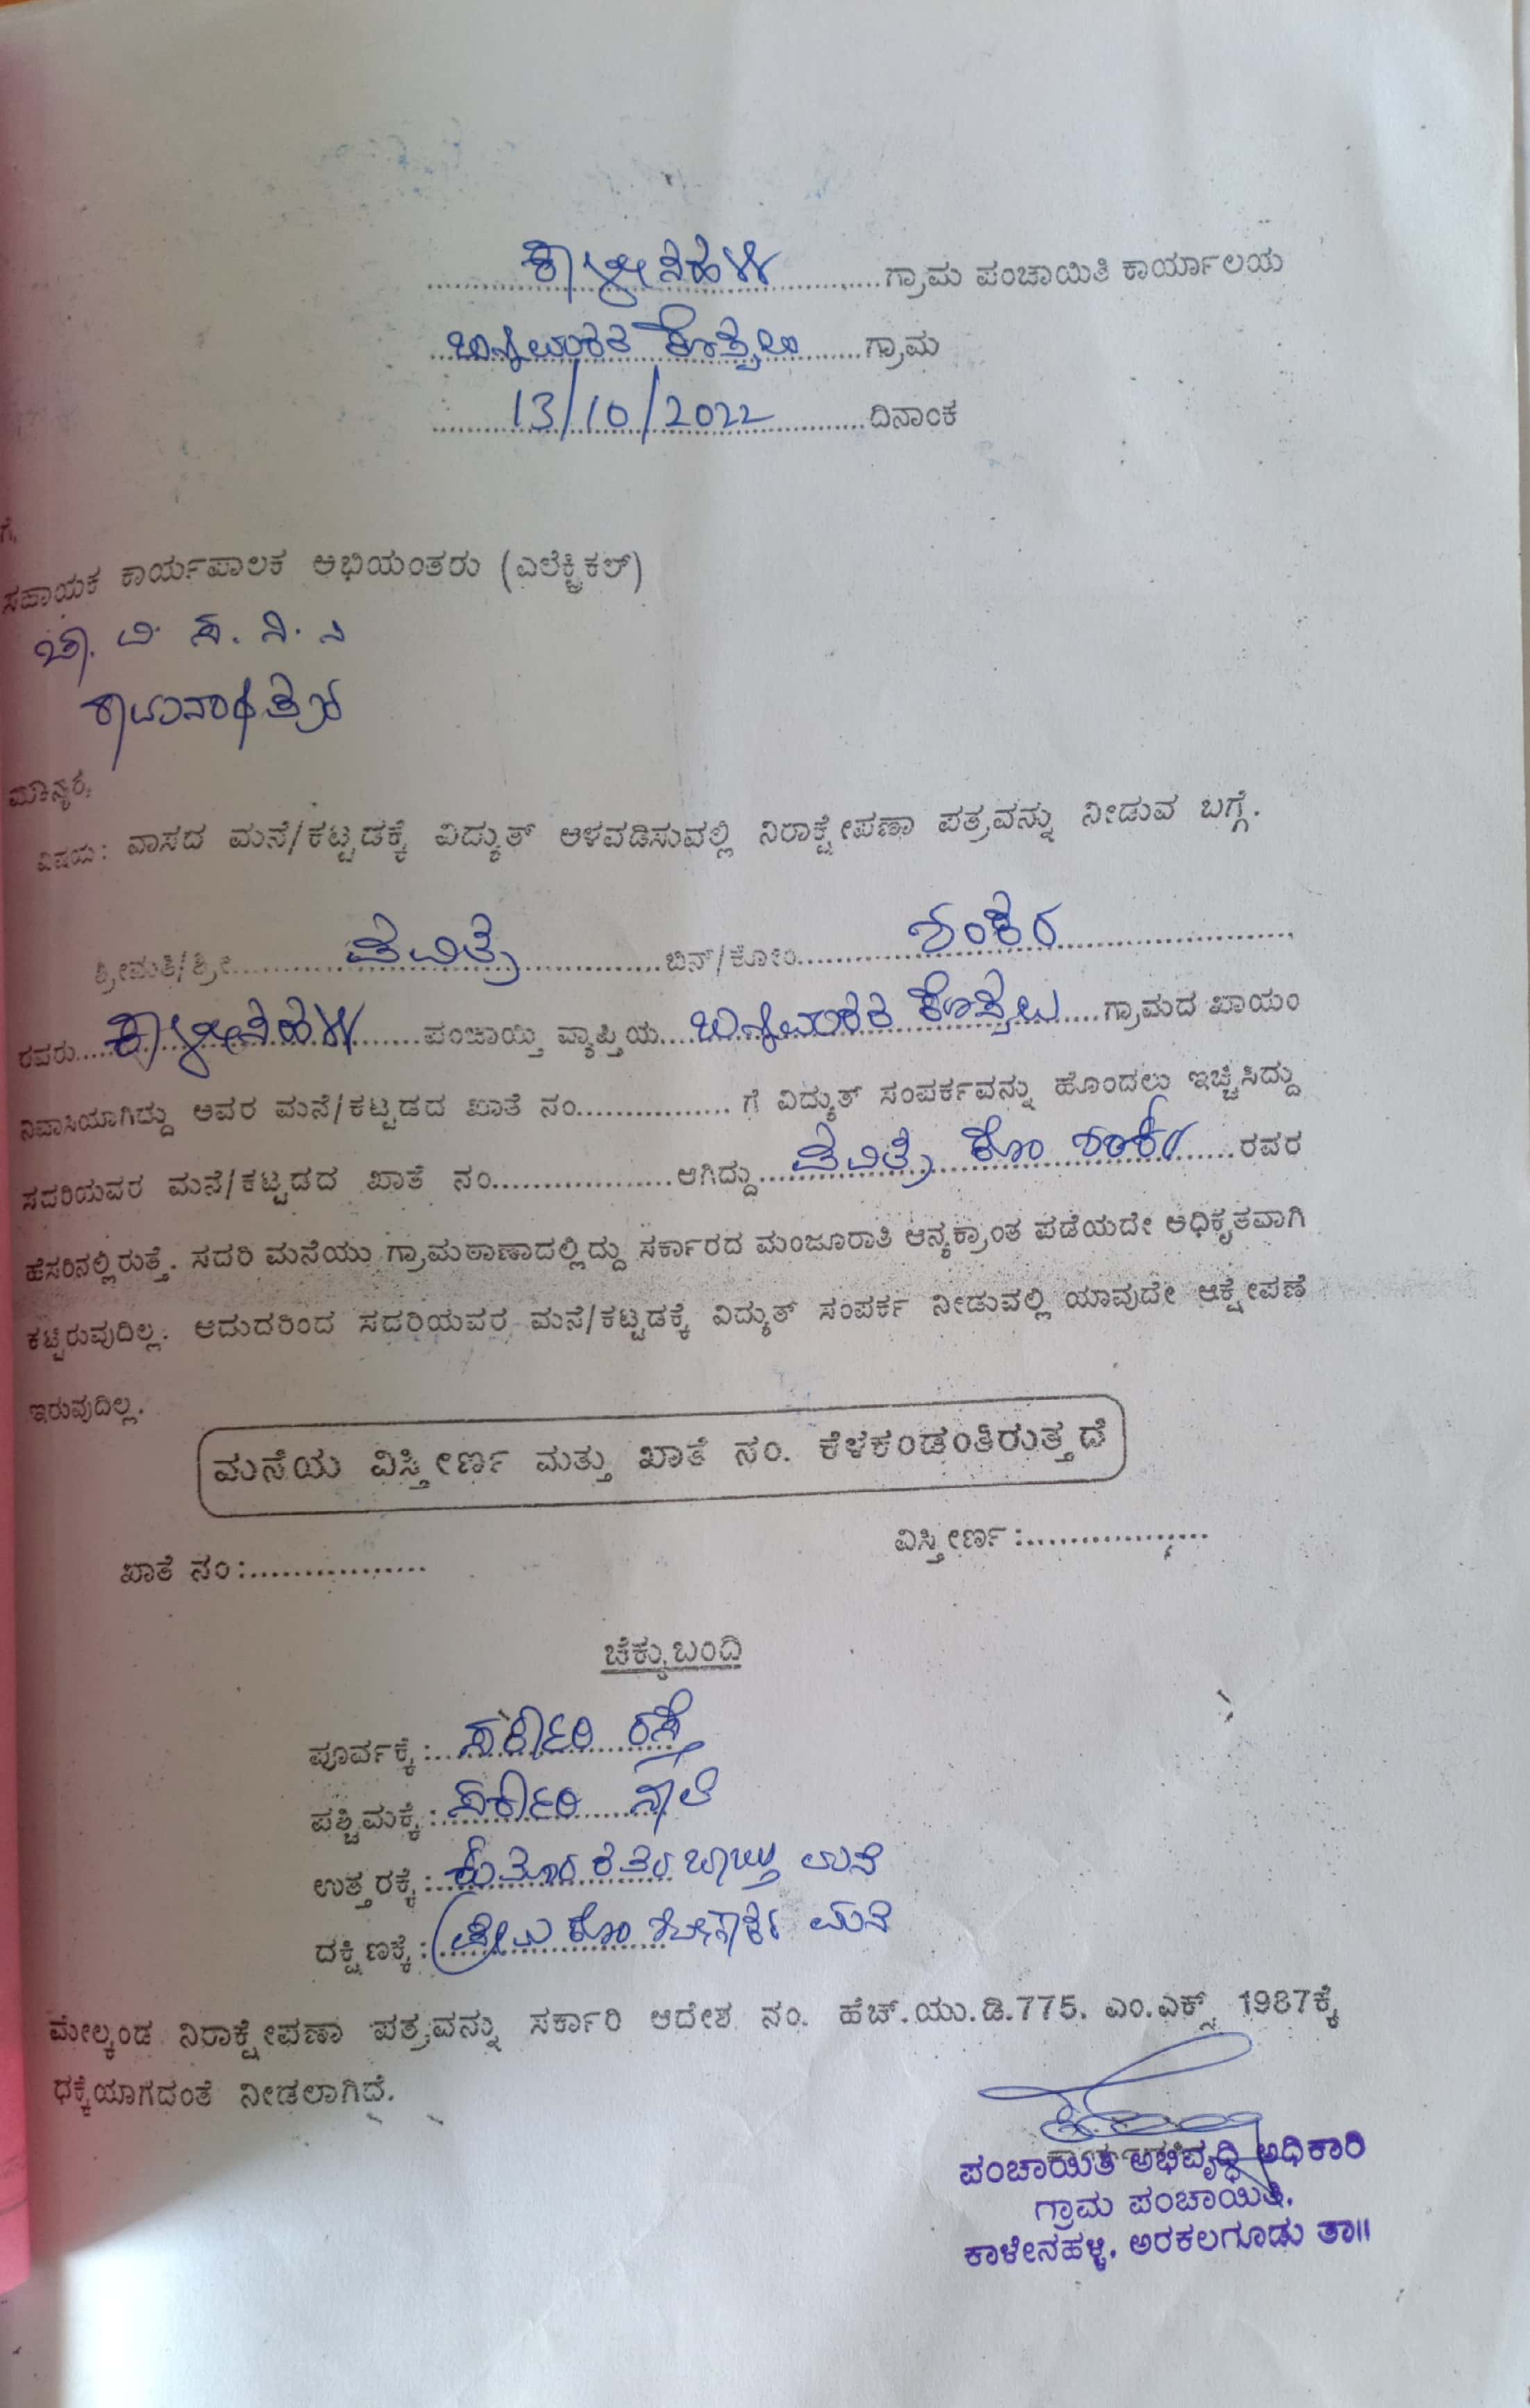 ಕಾಳೇನಹಳ್ಳಿ ಗ್ರಾಮ ಪಂಚಾಯಿತಿ ಕಾರ್ಯಾಲಯ
ಕೊಪ್ಪಲು ಗ್ರಾಮ
13/10/2022 ದಿನಾಂಕ
ಗೆ,
ಸಹಾಯಕ ಕಾರ್ಯಪಾಲಕ ಅಭಿಯಂತರು (ಎಲೆಕ್ಟ್ರಿಕಲ್)
ಚಾ. ವಿ. ಸ. ನಿ. ನಿ
ರಾಮನಾಥಪುರ
ಮಾನ್ಯರೆ,
ವಿಷಯ: ವಾಸದ ಮನೆ/ಕಟ್ಟಡಕ್ಕೆ ವಿದ್ಯುತ್ ಅಳವಡಿಸುವಲ್ಲಿ ನಿರಾಕ್ಷೇಪಣಾ ಪತ್ರವನ್ನು ನೀಡುವ ಬಗ್ಗೆ.
ಶ್ರೀಮತಿ/ಶ್ರೀ ಪವಿತ್ರ ಬಿನ್/ಕೋಂ ಶಂಕರ
ರವರು ಕಾಳೇನಹಳ್ಳಿ ಪಂಚಾಯ್ತಿ ವ್ಯಾಪ್ತಿಯ ಕೊಪ್ಪಲು ಗ್ರಾಮದ ಖಾಯಂ
ನಿವಾಸಿಯಾಗಿದ್ದು ಅವರ ಮನೆ/ಕಟ್ಟಡದ ಖಾತೆ ನಂ................ ಗೆ ವಿದ್ಯುತ್ ಸಂಪರ್ಕವನ್ನು ಹೊಂದಲು ಇಚ್ಚಿಸಿದ್ದು
ಸದರಿಯವರ ಮನೆ/ಕಟ್ಟಡದ ಖಾತೆ ನಂ.................. ಆಗಿದ್ದು ಪವಿತ್ರ ಕೋಂ ಶಂಕರ ರವರ
ಹೆಸರಿನಲ್ಲಿರುತ್ತೆ. ಸದರಿ ಮನೆಯು ಗ್ರಾಮಠಾಣಾದಲ್ಲಿದ್ದು ಸರ್ಕಾರದ ಮಂಜೂರಾತಿ ಅನ್ಯಕ್ರಾಂತ ಪಡೆಯದೇ ಅಧಿಕೃತವಾಗಿ
ಕಟ್ಟಿರುವುದಿಲ್ಲ. ಆದುದರಿಂದ ಸದರಿಯವರ ಮನೆ/ಕಟ್ಟಡಕ್ಕೆ ವಿದ್ಯುತ್ ಸಂಪರ್ಕ ನೀಡುವಲ್ಲಿ ಯಾವುದೇ ಆಕ್ಷೇಪಣೆ
ಇರುವುದಿಲ್ಲ.
ಮನೆಯ ವಿಸ್ತೀರ್ಣ ಮತ್ತು ಖಾತೆ ನಂ. ಕೆಳಕಂಡಂತಿರುತ್ತದೆ
ಖಾತೆ ನಂ:................. ವಿಸ್ತೀರ್ಣ:..................
ಚೆಕ್ಕುಬಂದಿ
ಪೂರ್ವಕ್ಕೆ: ಸರ್ಕಾರಿ ರಸ್ತೆ
ಪಶ್ಚಿಮಕ್ಕೆ: ಸರ್ಕಾರಿ ನಾಲೆ
ಉತ್ತರಕ್ಕೆ: ಮನೆ
ದಕ್ಷಿಣಕ್ಕೆ: ಪ್ರೇಮ ಕೋಂ ಮನೆ
ಮೇಲ್ಕಂಡ ನಿರಾಕ್ಷೇಪಣಾ ಪತ್ರವನ್ನು ಸರ್ಕಾರಿ ಆದೇಶ ನಂ. ಹೆಚ್.ಯು.ಡಿ.775. ಎಂ.ಎಕ್ಸ್ 1987ಕ್ಕೆ
ಧಕ್ಕೆಯಾಗದಂತೆ ನೀಡಲಾಗಿದೆ.
ಪಂಚಾಯಿತಿ ಅಭಿವೃದ್ಧಿ ಅಧಿಕಾರಿ
ಗ್ರಾಮ ಪಂಚಾಯಿತಿ,
ಕಾಳೇನಹಳ್ಳಿ, ಅರಕಲಗೂಡು ತಾ॥